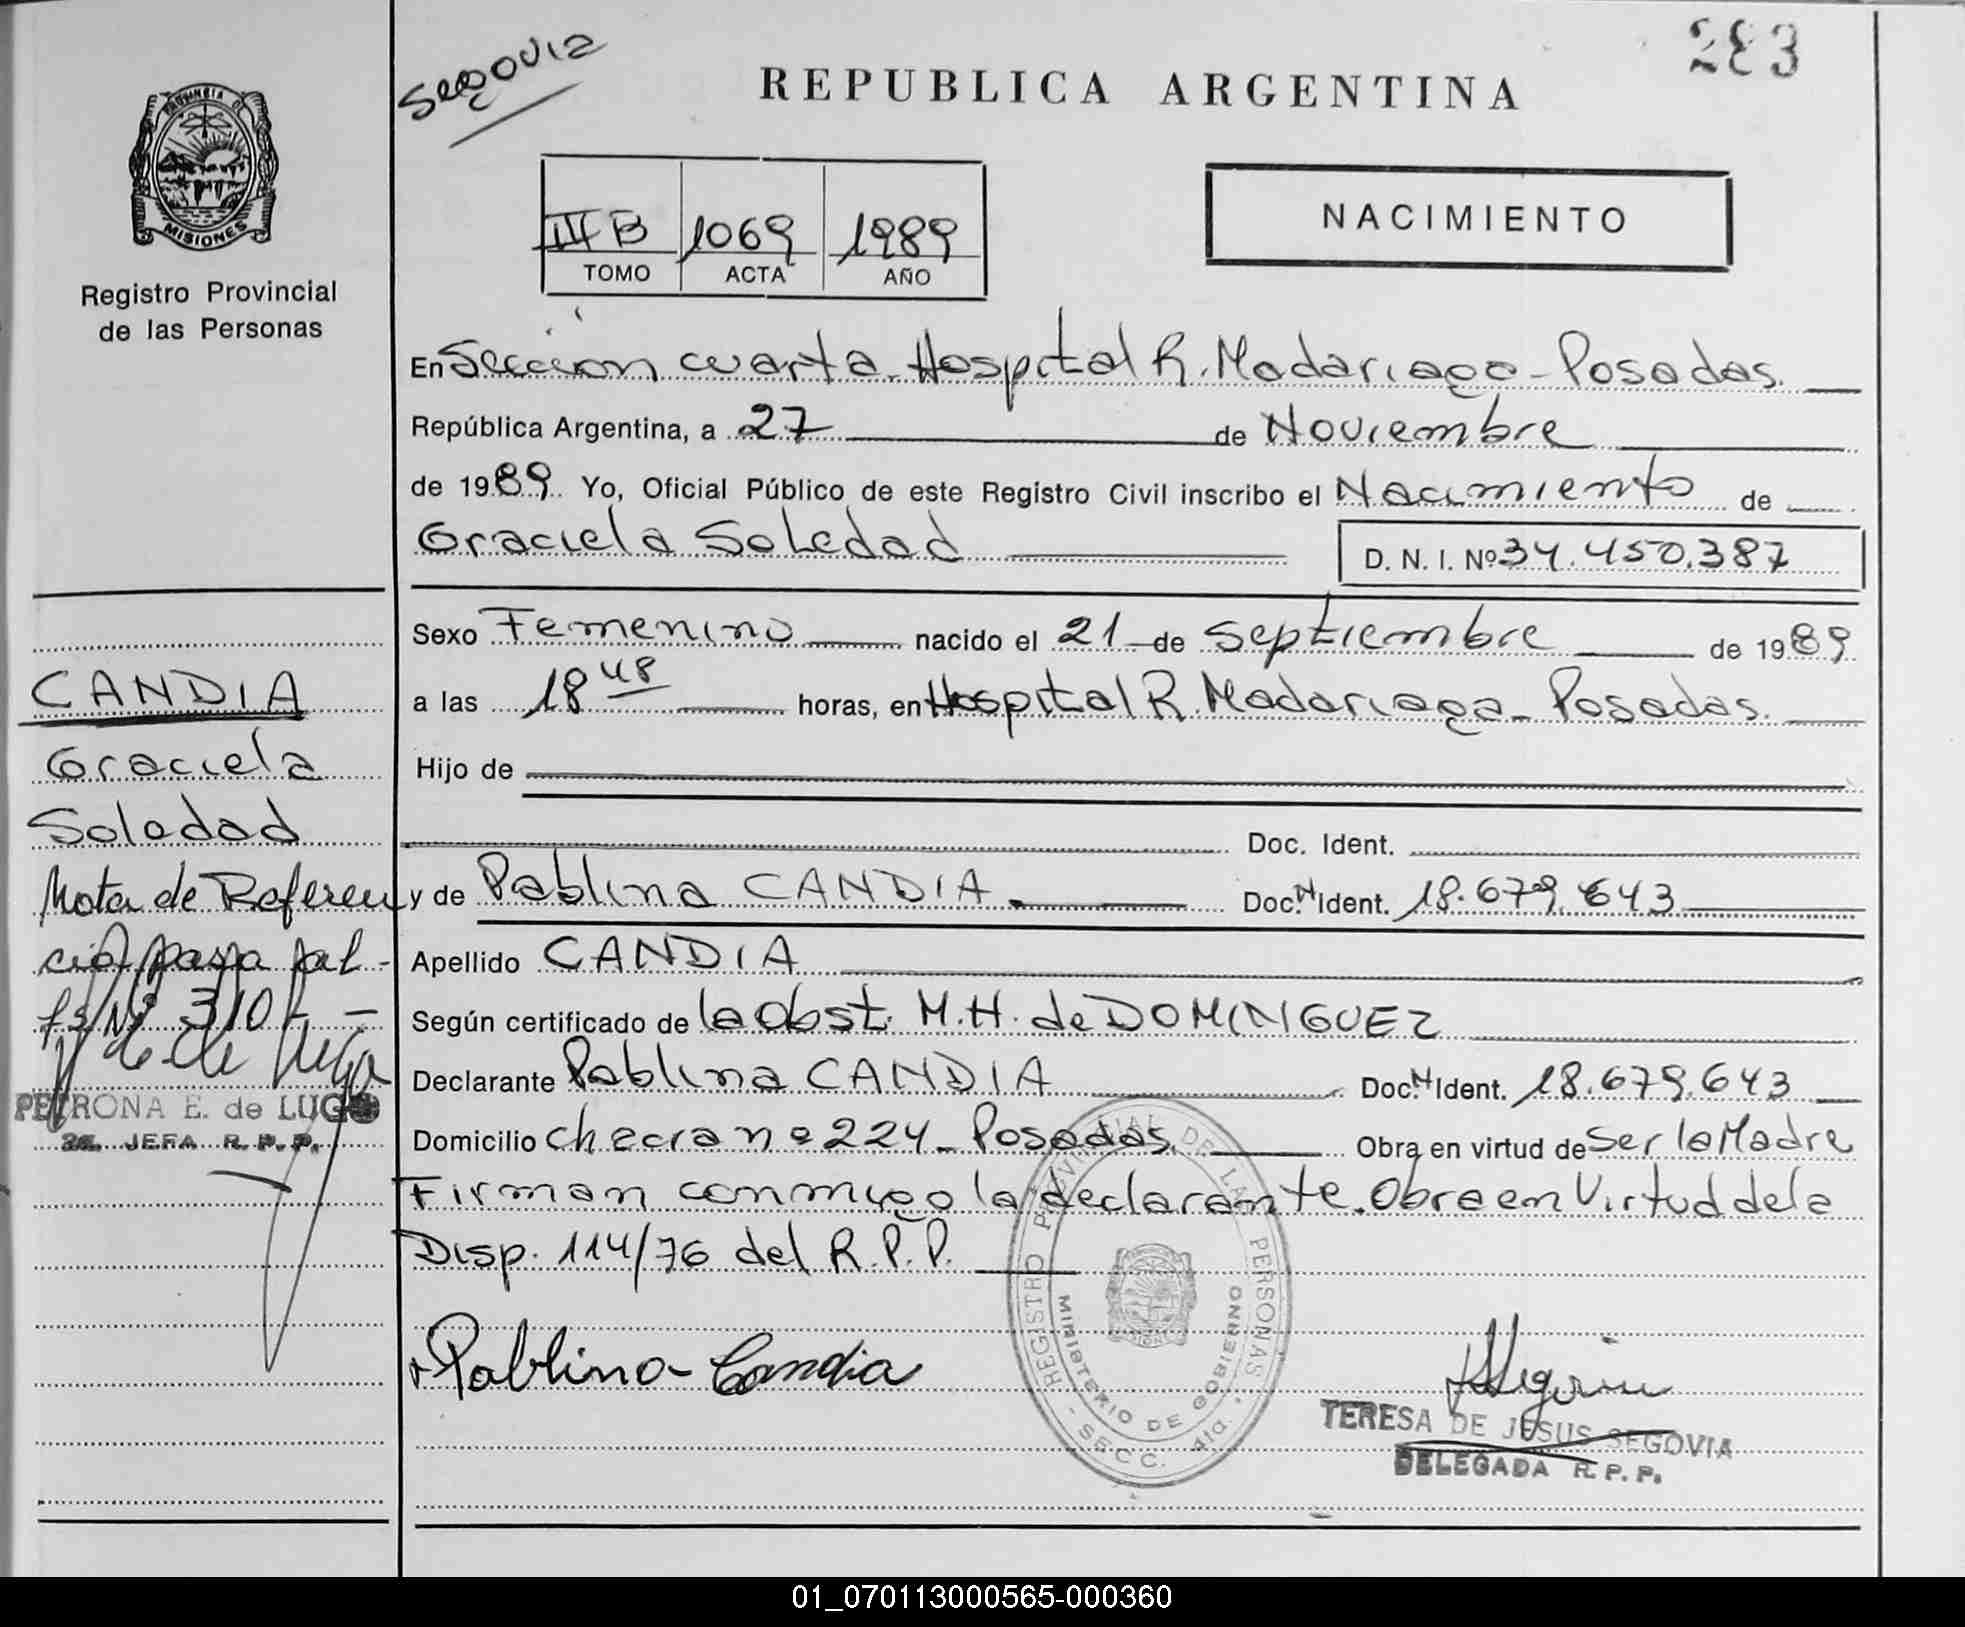 Segovia
283
REPUBLICA ARGENTINA
PROVINCIA DE
MISIONES
Registro Provincial
de las Personas
III B 1069 1989
TOMO ACTA AÑO
NACIMIENTO
En Sección cuarta. Hospital R. Madariaga - Posadas.
República Argentina, a 27 de Noviembre
de 1989. Yo, Oficial Público de este Registro Civil inscribo el Nacimiento de
Graciela Soledad
D. N. I. Nº 34.450.387
Sexo Femenino nacido el 21 de Septiembre de 1989
a las 18 48 horas, en Hospital R. Madariaga - Posadas.
Hijo de
Doc. Ident.
y de Pablina CANDIA Doc. N Ident. 18.679.643
Apellido CANDIA
Según certificado de la Obst. M.H. de DOMINGUEZ
Declarante Pablina CANDIA Doc. N Ident. 18.679.643
Domicilio checra nº 224 - Posadas. Obra en virtud de Ser la Madre
Firman conmigo la declarante. Obra en Virtud de la
Disp. 114/76 del R.P.P.
Pablina Candia
REGISTRO PROVINCIAL DE LAS PERSONAS
MINISTERIO DE GOBIERNO
- SECC. 4ta. -
TERESA DE JESUS SEGOVIA
DELEGADA R.P.P.
CANDIA
Graciela
Soledad
Nota de Referen
cia pasa al
Fº Nº 310
PETRONA E. de LUGO
JEFA R.P.P.
01_070113000565-000360